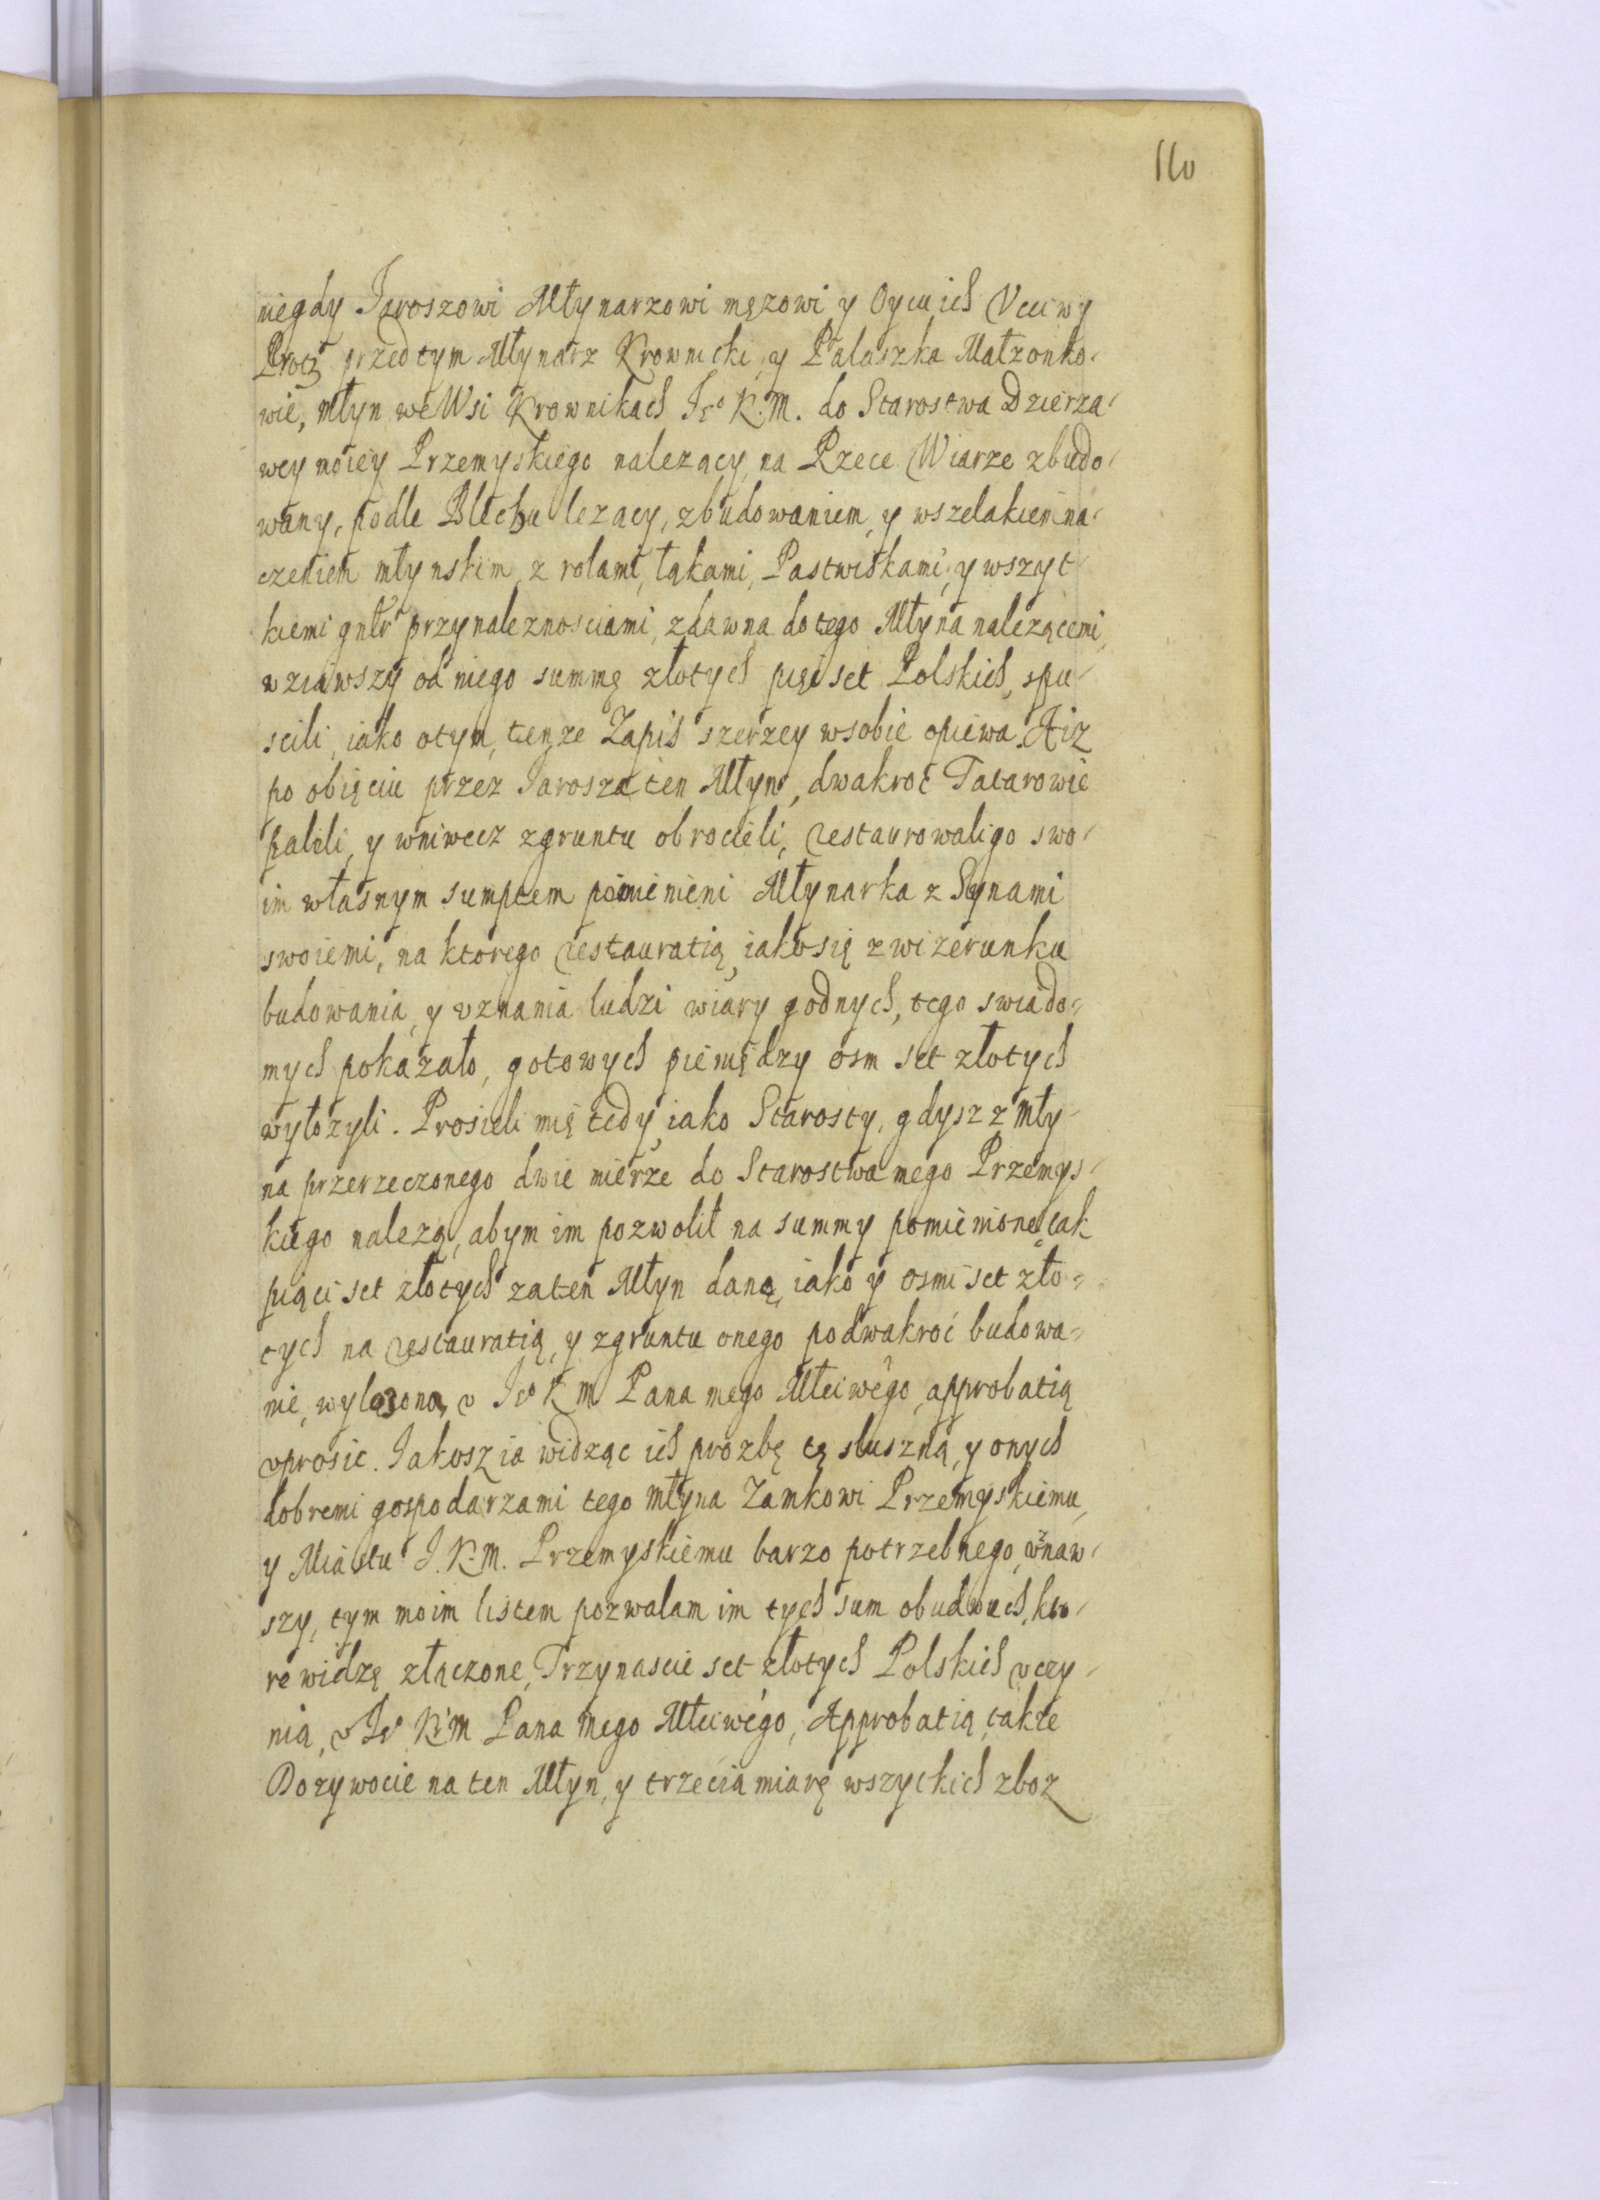 160
niegdy Jaroszowi Młynarzowi mężowi y Oycu ich Vcciwy
Proc przedtym Młynarz Krownicki, y Palaszka Małzonko-
wie, młyn we Wsi Krownikach Jo K. M. do Starostwa Dzierza-
wey moiey Przemyskiego nalezący, na Rzece Wiarze zbudo-
wany, podle Blechu lezący, zbudowaniem, y wszelakiem na-
czeniem młynskim, z rolami, łąkami, Pastwiskami, y wszyt-
kiemi gnlr przynaleznosciami, zdawna do tego Młyna nalezącemi,
wziąwszy od niego summę złotych pięć set Polskich, spu-
scili, iako otym, tenze Zapis szerzey wsobie opiewa. A iz
po obięciu przez Jarosza ten Młyn, dwakroć Tatarowie
palili, y wniwecz zgruntu obrocieli, restaurowali go swo-
im własnym sumptem pomienieni Młynarka z Synami
swoiemi, na ktorego restauratią, iako się z wizerunku
budowania, y vznania ludzi wiary godnych, tego swiado-
mych pokazało, gotowych pieniędzy osm set złotych
wyłozyli. Prosieli mię tedy, iako Starosty, gdysz z mły-
na przerzeczonego dwie mierze do Starostwa mego Przemys-
kiego nalezą, abym im pozwolił na summy pomienione, tak
piąci set złotych za ten Młyn daną, iako y osmi set zło-
tych na restauratią, y zgruntu onego podwakroć budowa-
nie, wylozoną, v Jo K M Pana mego Młciwego, approbatią
vprosic. Jakosz ia widząc ich prozbę tę słuszną, y onych
dobremi gospodarzami tego młyna Zamkowi Przemyskiemu,
y Miastu J. K. M. Przemyskiemu barzo potrzebnego, vznaw-
szy, tym moim listem pozwalam im tych sum obudwuch, kto-
re widzę złączone, Trzynascie set złotych Polskich vczy-
nią, v Jo K M Pana mego Młciwego, Approbatią, takze
Dozywocie na ten Młyn, y trzecią miarę wszytkich zboz